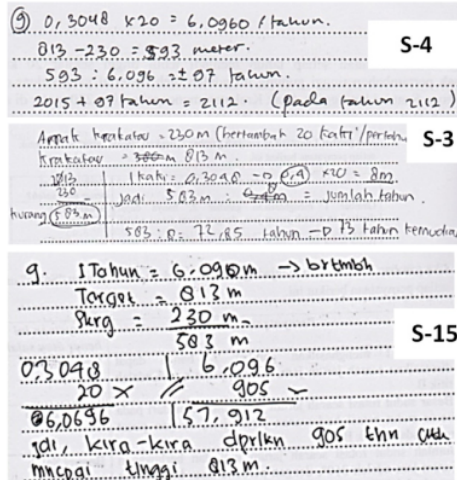 ⑨ 0,3048 x 20 = 6,0960 / tahun.
813 - 230 = 593 meter.
S-4
593 : 6.096 = ± 97 tahun.
2015 + 97 tahun = 2112. (pada tahun 2112)
Annak krakatau = 230 m (bertambah 20 kaki/pertahun
S-3
Krakatau = 813 m.
813
1 kaki = 0,3048 → 0,4 x 20 = 8m
230
kurang 583 m
Jadi 583 m : = jumlah tahun.
583 : 8 = 72,85 tahun → 73 tahun kemudian
9. 1 Tahun = 6.096 m → brtmbh
Target = 813 m
Skrg = 230 m
583 m
S-15
0.3048 | 6.096
20 x // 905
6,0696 | 57,912
jdi, kira-kira dprlkn 905 thn
mncpai tinggi 813 m.